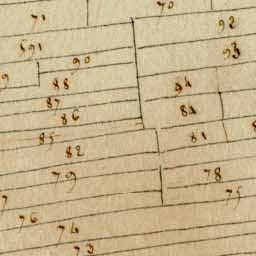 71
70
92
591
93
90
88
94
87
84
86
85
81
82
79
78
75
76
74
73